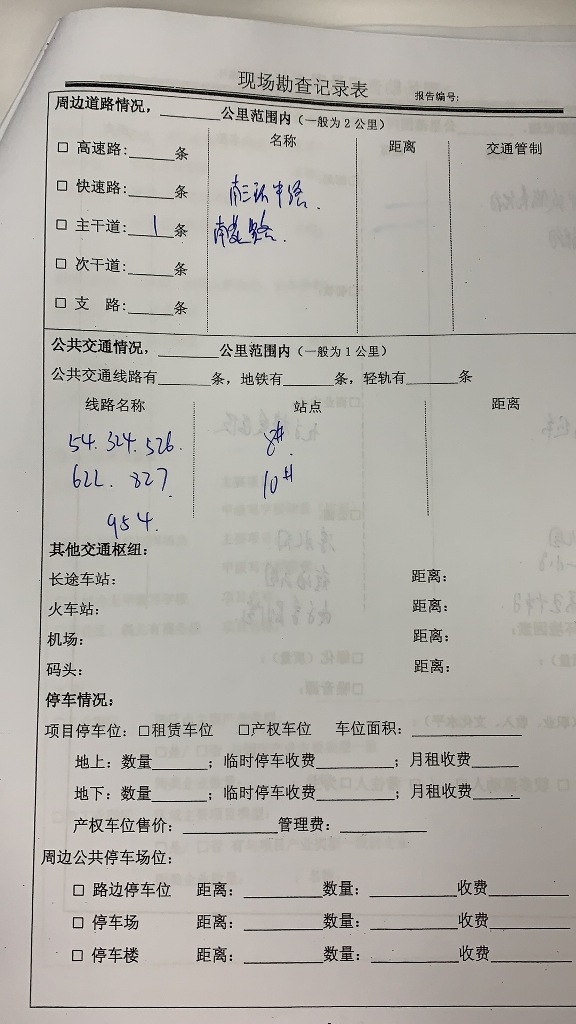 现场勘查记录表 报告编号:
周边道路情况，______公里范围内（一般为2公里）
名称 距离 交通管制
□ 高速路:_____条
□ 快速路:_____条 南三环中路.
□ 主干道: 1 条 南苑路.
□ 次干道:_____条
□ 支 路:_____条
公共交通情况，______公里范围内（一般为1公里）
公共交通线路有______条，地铁有______条，轻轨有______条
线路名称 站点 距离
54. 324. 526. 8#
622. 827. 10#
954.
其他交通枢纽：
长途车站： 距离：
火车站： 距离：
机场： 距离：
码头： 距离：
停车情况：
项目停车位：□租赁车位 □产权车位 车位面积：____________
地上：数量______；临时停车收费________；月租收费_____
地下：数量______；临时停车收费________；月租收费_____
产权车位售价：__________管理费：_________
周边公共停车场位：
□ 路边停车位 距离：________数量：_________收费________
□ 停车场 距离：________数量：_________收费________
□ 停车楼 距离：________数量：_________收费________